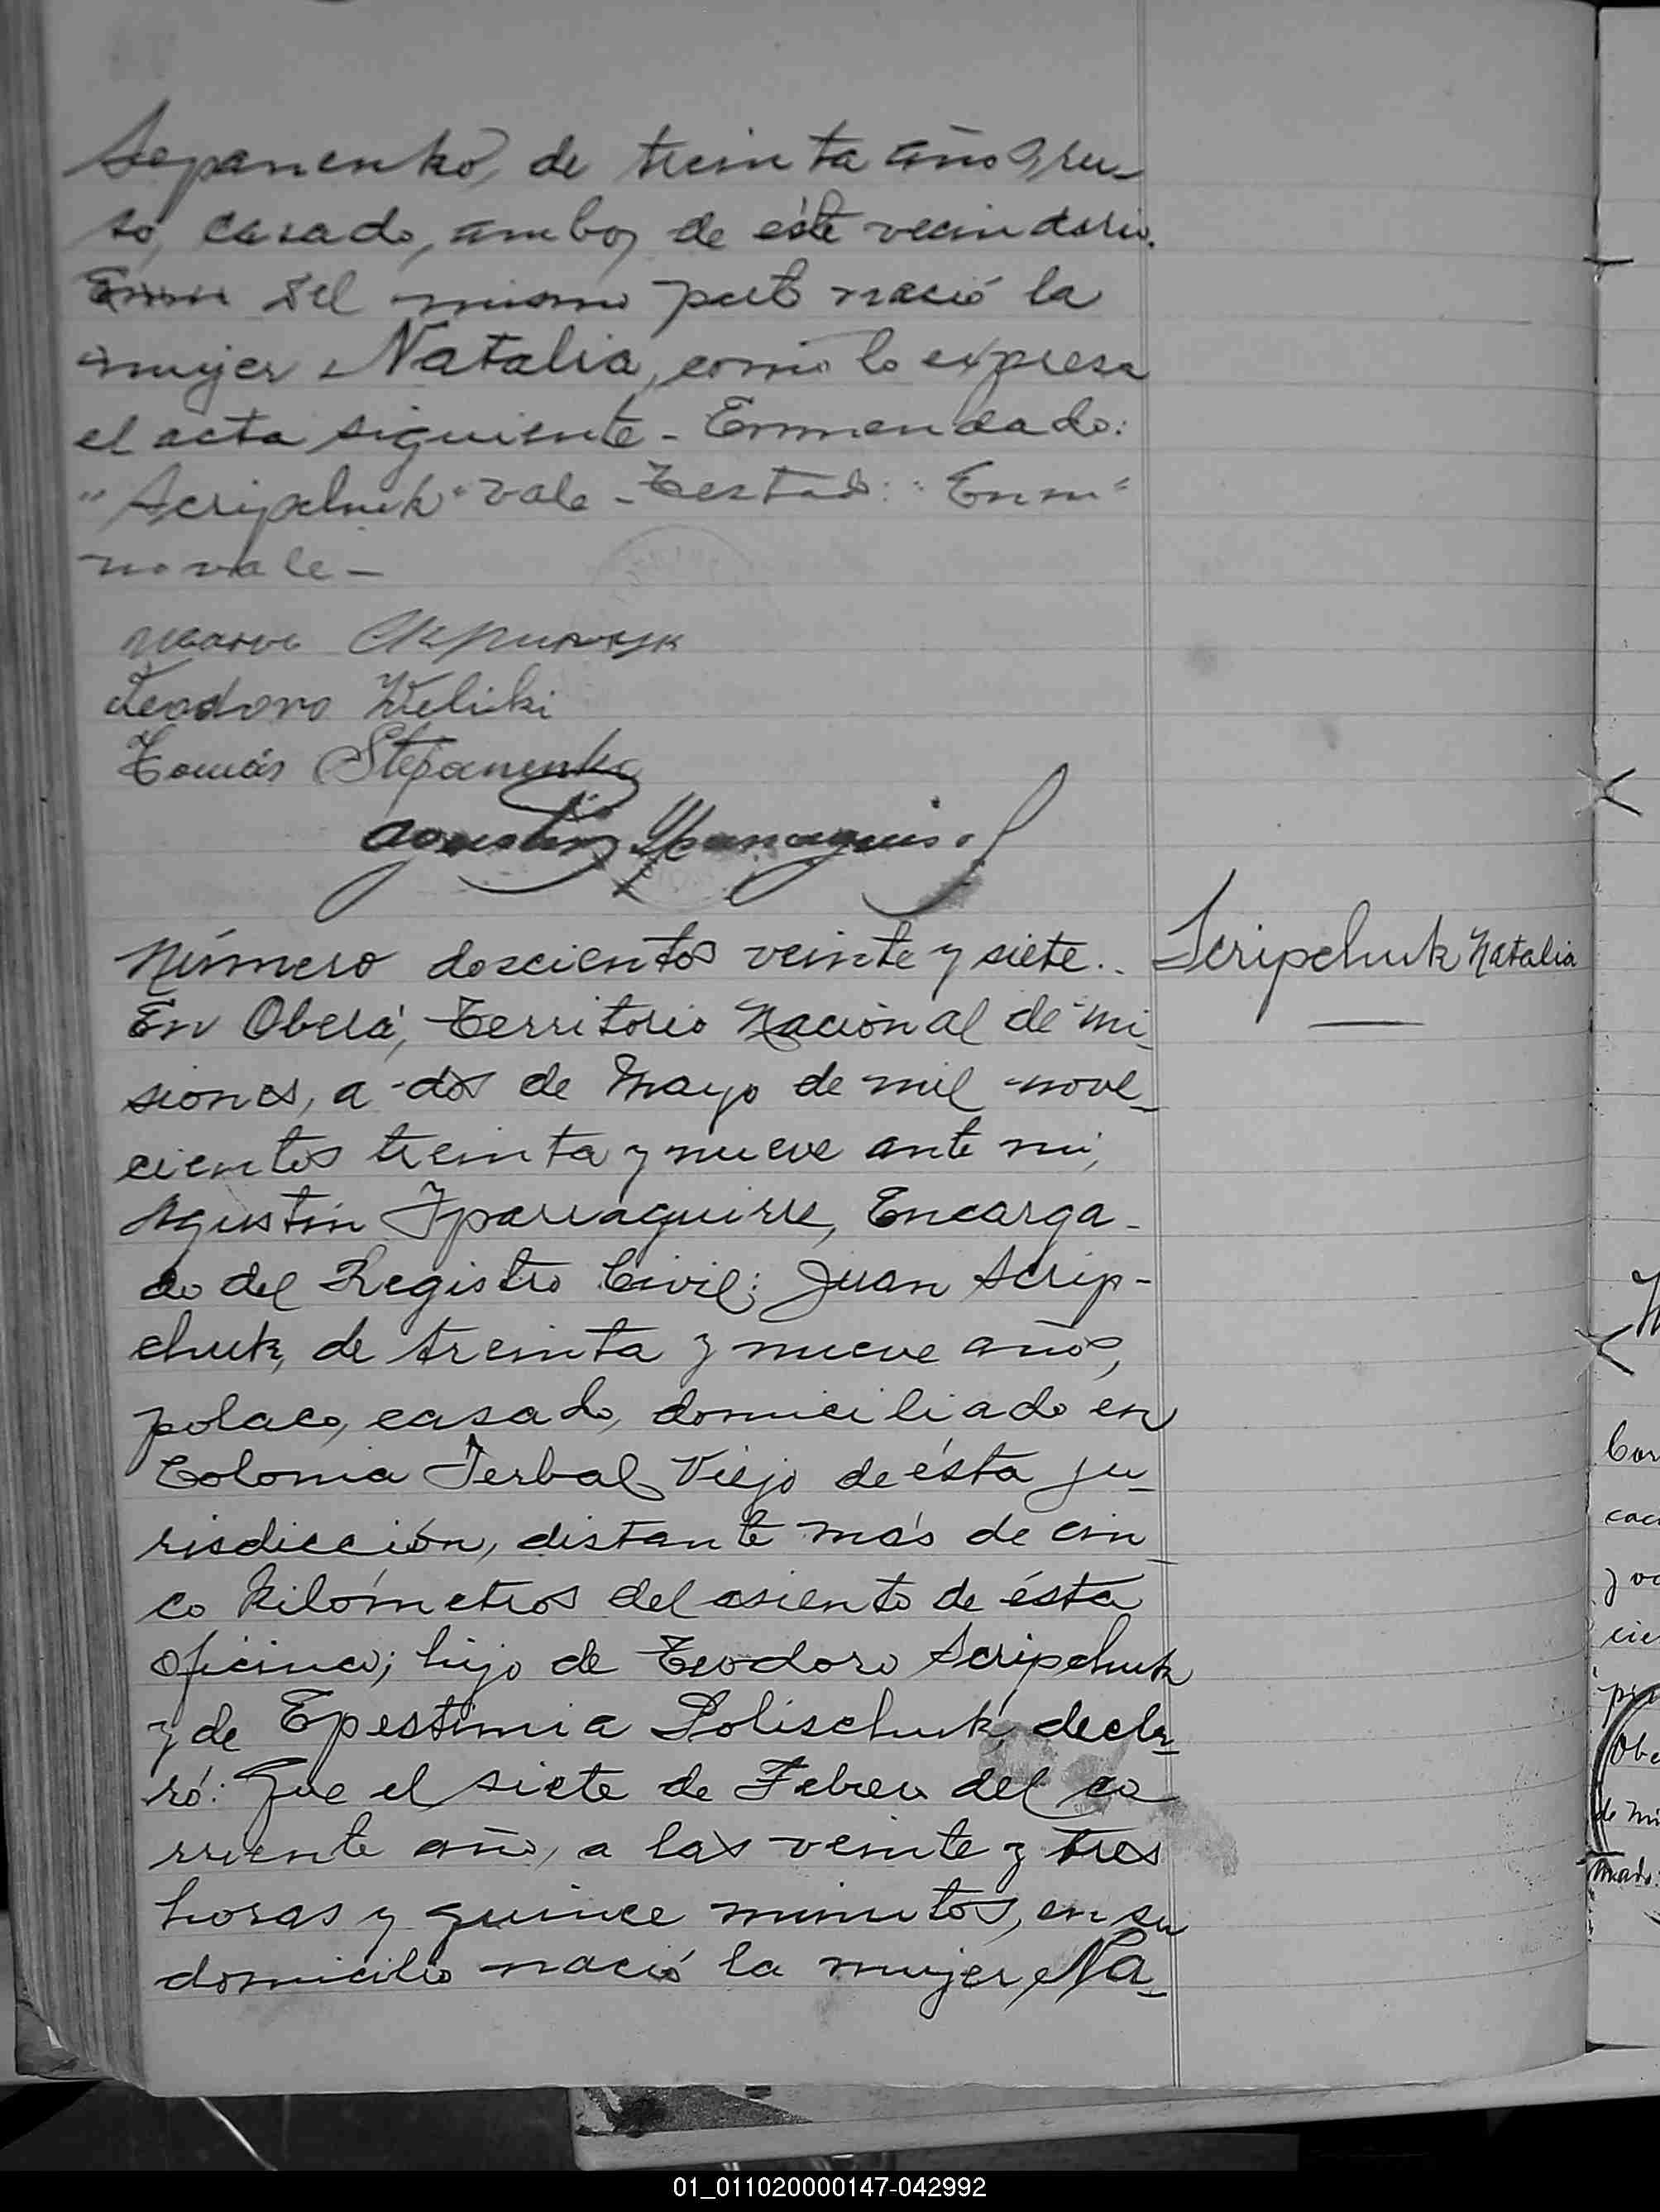 Sepanenko, de treinta años, ru-
so, casado, ambos de éste vecindario.
Enm del mismo parto nació la
mujer Natalia, como lo expresa
el acta siguiente - Enmendado:
"Scripchuk" vale - Testado: "Enm"
no vale -
Teodoro Weliki
Tomás Stepanenko
Agustín Yparraguirre
Número doscientos veinte y siete..
Scripchuk Natalia
En Oberá, Territorio Nacional de Mi-
siones, a dos de Mayo de mil nove-
cientos treinta y nueve ante mi,
Agustín Yparraguirre, Encarga-
do del Registro Civil; Juan Scrip-
chuk, de treinta y nueve años,
polaco, casado, domiciliado en
Colonia Yerbal Viejo de ésta ju-
risdicción, distante más de cin-
co kilómetros del asiento de ésta
oficina; hijo de Teodoro Scripchuk
y de Epestimia Polischuk, decla-
ró: Que el siete de Febrero del co
rriente año, a las veinte y tres
horas y quince minutos, en su
domicilio nació la mujer Na-
Cor
cac
y oc
cie
pre
Obe
de Mi
01_011020000147-042992